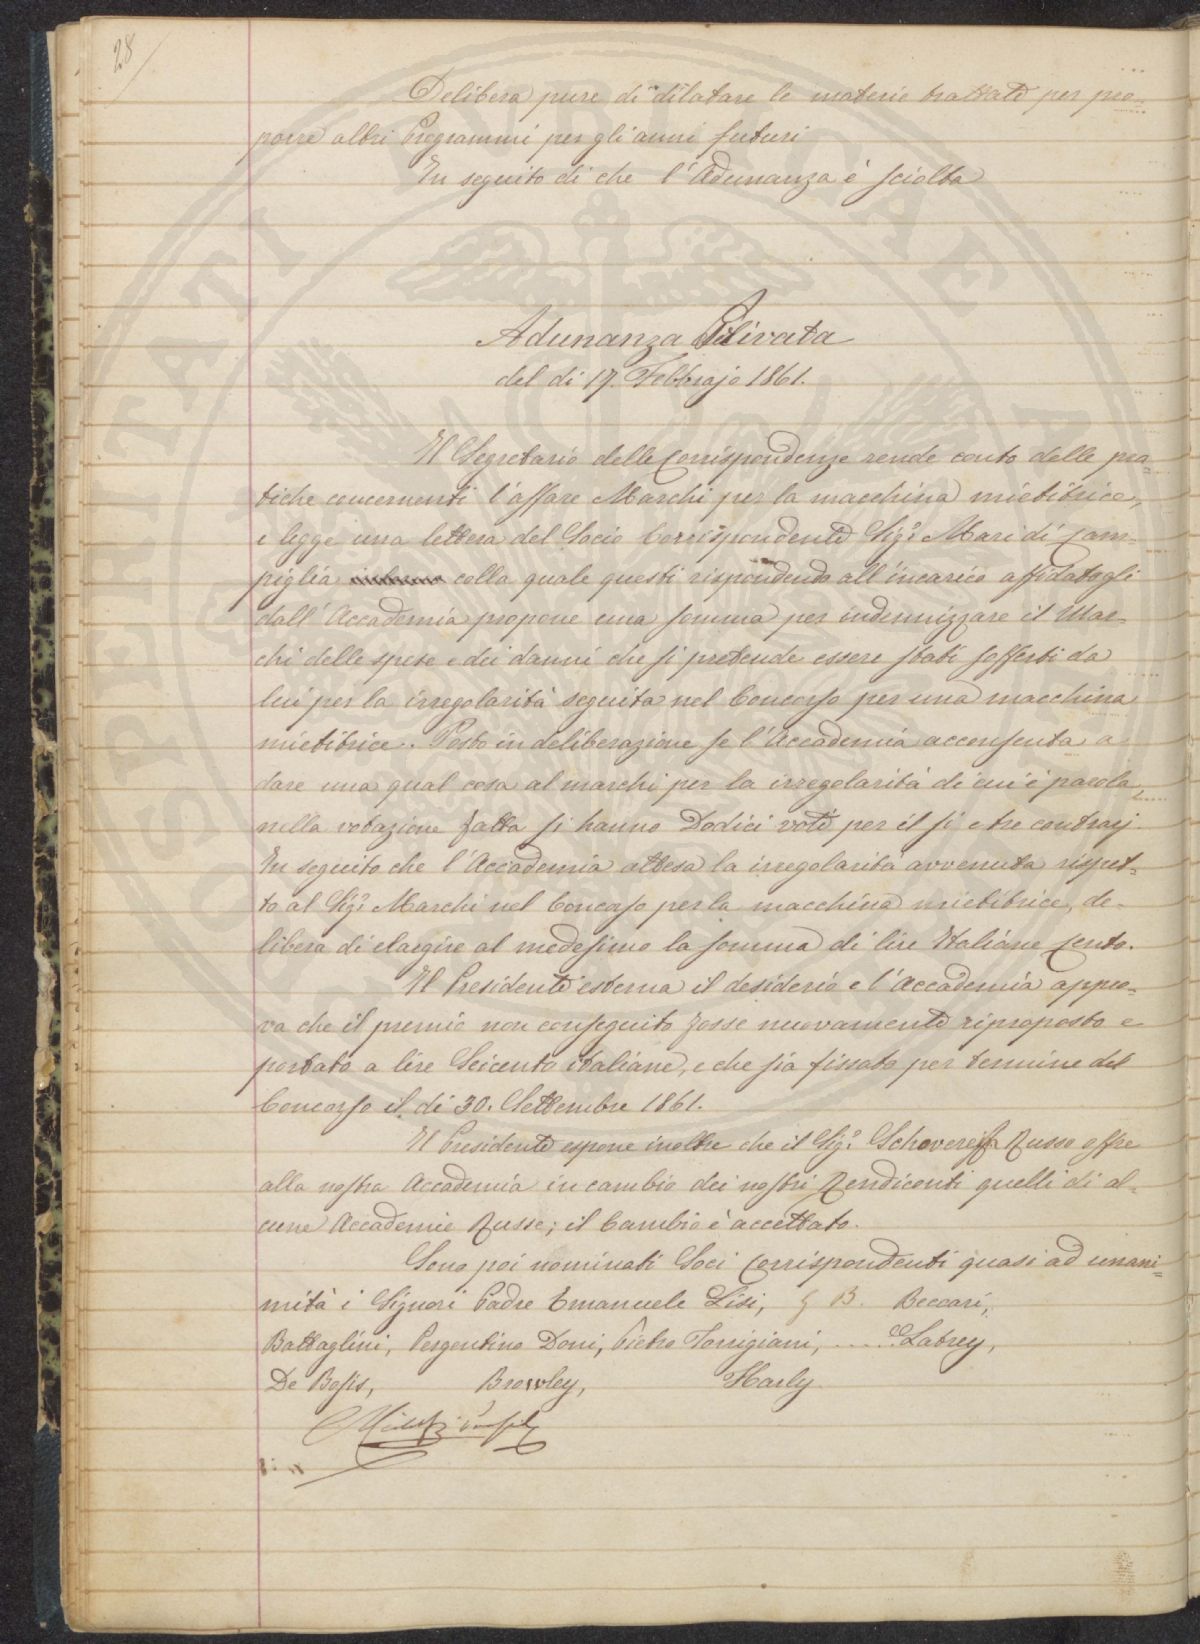 28
Delibera pure di dilatare le materie trattate per pro-
porre altri Programmi per gli anni futuri
In seguito di che l'Adunanza è sciolta
Adunanza Privata
del di 17. Febbrajo 1861.
Il Segretario delle Corrispondenze rende conto delle pra-
tiche concernenti l'affare Marchi per la macchina mietitrice,
e legge una lettera del Socio Corrispondente Sig.r Mari di Cam-
piglia colla quale questi rispondendo all'incarico affidatogli
dall'Accademia propone una somma per indennizzare il Mar-
chi delle spese e dei danni che si pretende essere stati sofferti da
lui per la irregolarità seguita nel Concorso per una macchina
mietitrice. Posto in deliberazione se l'Accademia acconsenta a
dare una qual cosa al marchi per la irregolarità di cui è parola,
nella votazione fatta si hanno Dodici voti per il si e tre contrarj.
In seguito che l'Accademia attesa la irregolarità avvenuta rispet-
to al Sig.r Marchi nel Concorso per la macchina mietitrice, de-
libera di elargire al medesimo la somma di lire Italiane Cento.
Il Presidente esterna il desiderio e l'Accademia appro-
va che il premio non conseguito fosse nuovamente riproposto e
portato a lire Seicento italiane, e che sia fissato per termine del
Concorso il di 30. Settembre 1861.
Il Presidente espone inoltre che il Sig.r Russo offre
alla nostra Accademia in cambio dei nostri Rendiconti quelli di al-
cune Accademie Russe; il Cambio è accettato.
Sono poi nominati Soci Corrispondenti quasi ad unani-
mità i Signori Padre Emanuele Lisi, G B. Beccari,
Battaglini, Pergentino Doni, Pietro Torrigiani, ..... Labrey,
De Bosis, Browley, Harly.
OSPERITATI PVBLICAE AV